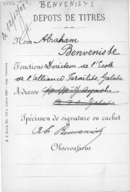 BENVENISTE
DÉPOTS DE TITRES
Nom Abraham
Benveniste
Fonctions Directeur de l'École
de l'Alliance Israélite, Galata
Adresse
Spécimen de signature ou cachet
Ab. Benveniste
Observations